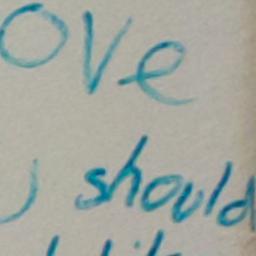 ove
should